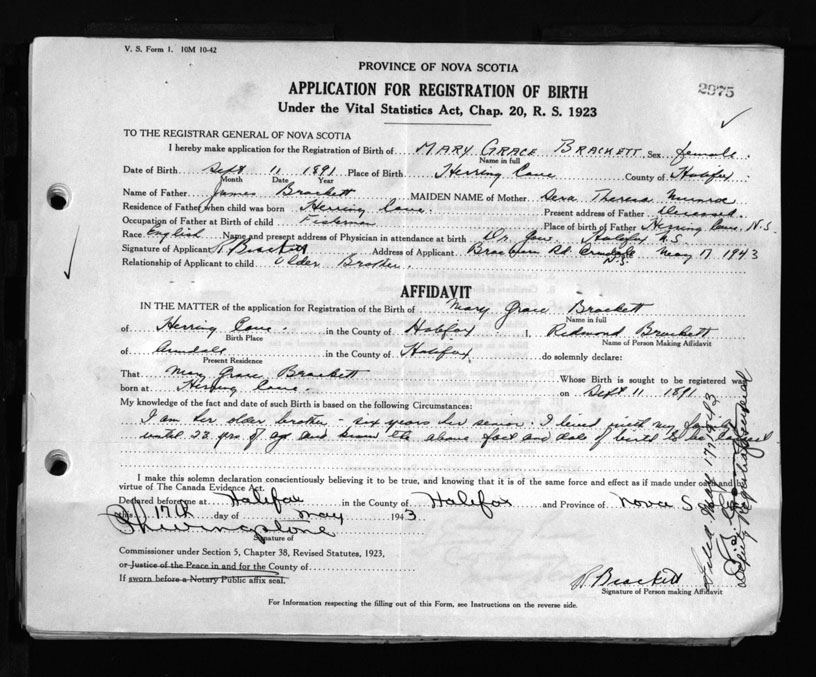 V. S. Form 1. 10M 10-42
PROVINCE OF NOVA SCOTIA
2975
APPLICATION FOR REGISTRATION OF BIRTH
Under the Vital Statistics Act, Chap. 20, R. S. 1923
TO THE REGISTRAR GENERAL OF NOVA SCOTIA
I hereby make application for the Registration of Birth of MARY GRACE BRACKETT Sex female
Name in full
Date of Birth Sept 11 1891 Place of Birth Herring Cove County of Halifax
Month Date Year
Name of Father James Brackett MAIDEN NAME of Mother Theresa Munroe
Residence of Father when child was born Herring Cove. Present address of Father Deceased
Occupation of Father at Birth of child Fisherman Place of birth of Father Herring Cove, N.S.
Race English Name and present address of Physician in attendance at birth Dr. Halifax N.S.
Signature of Applicant R Brackett Address of Applicant Rd. Armdale May 17 1943
N.S.
Relationship of Applicant to child Older Brother.
AFFIDAVIT
IN THE MATTER of the application for Registration of the Birth of Mary Grace Brackett
Name in full
of Herring Cove. in the County of Halifax I, Redmond Brackett
Birth Place Name of Person Making Affidavit
of Armdale in the County of Halifax do solemnly declare:
Present Residence
That Mary Grace Brackett Whose Birth is sought to be registered was
born at Herring Cove. on Sept 11 1891
My knowledge of the fact and date of such Birth is based on the following Circumstances:
I am her older brother - six years her senior. I lived with my family
until 22 yrs of age and know the above fact and date of birth to be correct
I make this solemn declaration conscientiously believing it to be true, and knowing that it is of the same force and effect as if made under oath and by
virtue of The Canada Evidence Act.
Declared before me at Halifax in the County of Halifax and Province of Nova S
this 17th day of May 1943
Signature of
Commissioner under Section 5, Chapter 38, Revised Statutes, 1923,
or Justice of the Peace in and for the County of
If sworn before a Notary Public affix seal.
R. Brackett
Signature of Person making Affidavit
For Information respecting the filling out of this Form, see Instructions on the reverse side.
Filed May 17, 1943
Deputy Registrar General